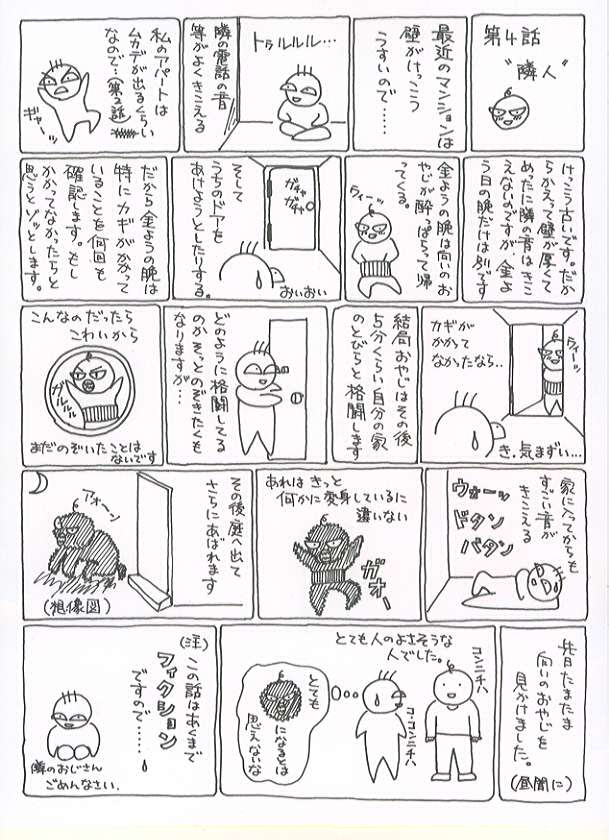 第4話
"隣人"
最近のマンションは
壁がけっこう
うすいので……
トゥルルル…
隣の電話の音
等がよくきこえる
私のアパートは
ムカデが出るくらい
なので…(第2話)
ギャーッ
けっこう古いです。だか
らかえって壁が厚くて
めったに隣の音はきこ
えないのですが、金よ
う日の晩だけは別です
金ようの晩は向いのお
やじが酔っぱらって帰
ってくる。
ウィーッ
そして
うちのドアを
あけようとしたりする。
ガチャ
ガチャ
おいおい
だから金ようの晩は
特にカギがかかって
いることを何回も
確認します。もし
かかってなかったらと
思うとゾッとします。
カギが
かかって
なかったなら..
ウィーッ
き、気まずい…
結局おやじはその後
5分くらい自分の家
のとびらと格闘します
どのように格闘してる
のかそっとのぞきたくも
なりますが…
こんなのだったら
こわいから
ガルルルル
まだのぞいたことは
ないです
家に入ってからも
すごい音が
きこえる
ウォーッ
ドタン
バタン
あれはきっと
何かに変身しているに
違いない
ガオー
その後庭へ出て
さらにあばれます
アオーン
(想像図)
先日たまたま
向いのおやじを
見かけました。
(昼間に)
とても人のよさそうな
人でした。
コンニチハ
コ・コンニチハ
とても
になるとは
思えないな
(注)
この話はあくまで
フィクション
ですので……
隣のおじさん
ごめんなさい.